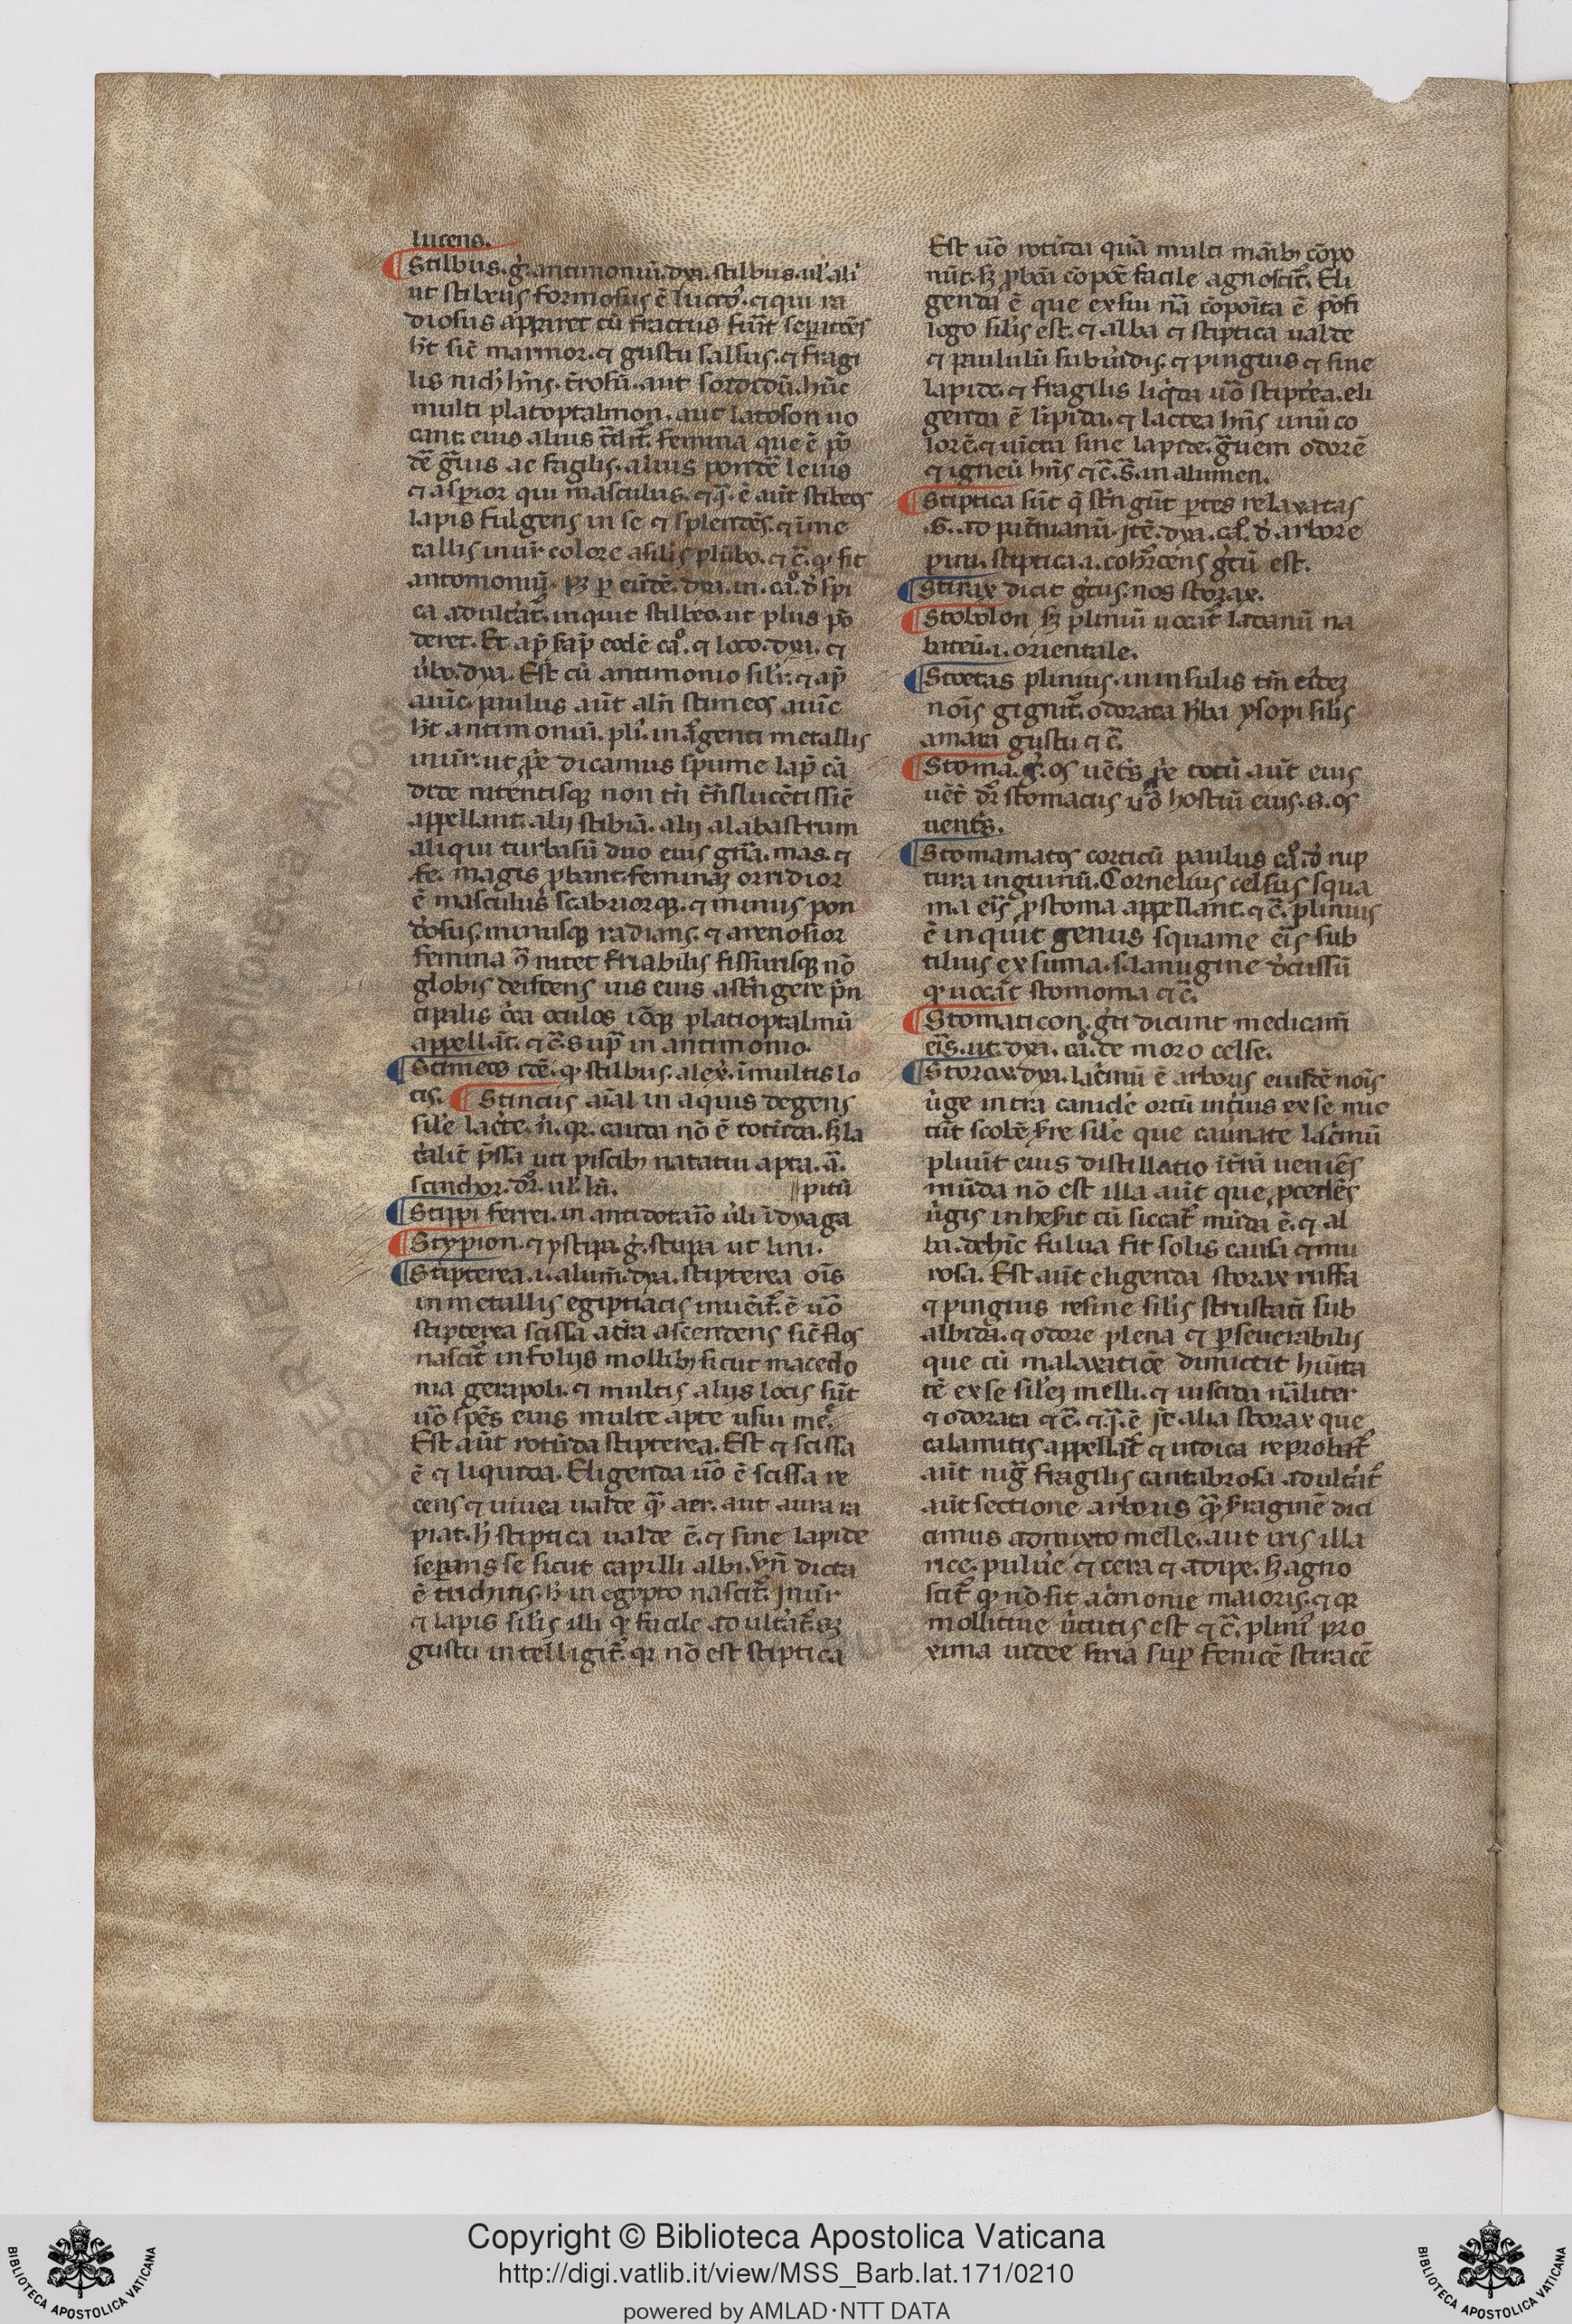 lucens.
Stilbus. g̃. antimoniũ. dya. stilbus. ul' ali'
ut stibeus formosus ẽ lucto². ⁊ qui ra
diosus apparet cũ fractus fuĩt sepatẽs
h̃t sic̃ marmor. ⁊ gustu salsus. ⁊ fragi
lis nich' hñs. t̃rosũ. aut sordidũ. hũc
multi platoptalmon. aut latoson uo
cant. eius alius femina que ẽ põ
dẽ g̃uis ac fagilis. alius pondẽ leuis
⁊ aspior qui masculus. aũt stibeos
lapis fulgens in se ⁊ splendẽs. ⁊ ĩ me
tallis inuĩr colore asilis plũbo. ⁊ c̃. ꝙ fit
antomoniũ. eũdẽ. dya. in. cã. d̃ spi
ca adult̃at. inquit stilbeo. ut plus põ
deret. Et eodẽ cã⁰. ⁊ loco. dya. ⁊
dya. Est cũ antimonio sil'r. ⁊ ap̃
auic̃. paulus aũt alñ stimeos auic̃
h̃t antimoniũ. pli'. in argenti metallis
inuĩr. ut dicamus spume lap̃ cã
dide nitentisqꝫ non tñ t̃nslucẽtissiẽ
appellant. alij stibiã. alij alabastrum
aliqui turbasũ duo eius gña. mas. ⁊
fe. magis ꝓbant. feminaꝫ orridior
ẽ masculus scabriorqꝫ. ⁊ minus pon
d̃osus. minusqꝫ radians. ⁊ arenosior
femina nitet friabilis fissurisqꝫ nõ
globis deiscens uis eius ast̃ngere p̃n
cipalis c̃ca oculos platioptalmũ
appell̃at. ⁊ c̃. sup̃ in antimonio.
Stimeos idẽ. ꝙ stilbus. alex̃. ĩ multis lo
cis. Stincus aĩal in aquis degens
sil'e lac̃te. ñ. qꝛ. cauda nõ ẽ rotũda. sꝫ la
p̃ssa uti piscibꝫ natatui apta. a.
scinchos. d̃r. ul' la. // pitũ
Stippi ferrei. in antidotaĩo ũli ĩ dyaga
Stypion. ⁊ ystipa g̃. stupa ut lini.
Stipterea. i. alum̃. dya. stipterea oĩs
in metallis egiptiacis inuẽit̃. ẽ uõ
stipterea scissa ac̃ra ascendens sic̃ flos
nascit̃ in folijs mollibꝫ sicut macedo
nia gerapoli. ⁊ multis alijs locis sũt
uõ sp̃es eius multe apte usui me⁰.
Est aũt rotũda stipterea. Est ⁊ scissa
ẽ ⁊ liquida. Eligenda uõ ẽ scissa re
cens ⁊ niuea ualde qm̃ aer. aut aura ra
piat. h̃ stiptica ualde ẽ. ⁊ sine lapide
sepans se sicut capilli albi. vñ dicta
ẽ trichitis. h̃ in egypto nascit̃. Inuĩr
⁊ lapis silis illi ꝙ facile adult̃at̃. sꝫ
gustu intelligit̃. qꝛ nõ est stiptica
Est uõ rotũda quã multi mãibꝫ cõpo
nũt. sꝫ ꝓbãi cõpoẽ facile agnoscit̃. Eli
genda ẽ que exsiu nã cõpoita ẽ põfi
logo silis est. ⁊ alba ⁊ stiptica ualde
⁊ paululũ subuĩdis. ⁊ pinguis ⁊ sine
lapide. ⁊ fragilis liq̃da uõ stiptea. eli
genda ẽ lĩpida. ⁊ lactea hñs unũ co
lorẽ. ⁊ uĩeta sine lapide. g̃uem odorẽ
⁊ igneũ hñs ⁊ c̃. S̃. in alumen.
Stiptica sũt q̃ st̃ngũt ptes relaxatas
.G. ad Jtẽ. dya. ca⁰. d̃ arbore
pini. stiptica. i. coh̃rcens g̃cũ est.
Stirax dicit g̃cus. nos storax.
Stobolon sꝫ pliniũ uocat̃ ladanũ na
bateũ. i. orientale.
Stoetas plinius. in insulis tm̃ eĩdeꝫ
noĩs gignit̃. odorata h̃ba ysopi silis
amara gustu ⁊ c̃.
Stoma. g̃. os uẽt̃s totũ aũt eius
uẽt̃ d̃r stomacus uõ hostiũ eius. s. os
uent̃s.
Stomamatos corticũ paulus ca⁰. d̃ rup
tura inguinũ. Cornelius celsus squa
ma eĩs ꝓ stoma appellant. ⁊ c̃. plinius
ẽ inquit genus squame eĩs sub
tilius ex suma. s. lanugine d̃cussũ
ꝙ uocãt stomoma ⁊ c̃.
Stomaticon. g̃ci dicunt medicam̃
eĩs. ut. dya. cã. de moro celse.
Storax. dya. lac̃mũ ẽ arboris eiusdẽ noĩs
ũge intra canicl'e ortũ inc̃ius ex se mic
tũt scobẽ sil'e que cauĩnate lac̃mũ
pluũt eius distillatio it̃rã ueniẽs
mũda nõ est illa aũt que ꝓcedẽs
ũgis inhesit cũ siccat̃ mũda ẽ. ⁊ al
ba. dehĩc fulua fit solis causa ⁊ mu
rosa. Est aũt eligenda storax ruffa
⁊ pinguis resine silis strustati sub
albida. ⁊ odore plena ⁊ pseuerabilis
que cũ malaxatiõe dimictit hũita
tẽ ex se sil'eꝫ melli. ⁊ uiscida nãliter
⁊ odorata ⁊ c̃. alia storax que
calamitis appellat̃ ⁊ indica reprobat̃
aũt nig̃ fragilis cantabrosa adult̃at̃
aũt sectione arboris qm̃ fraginẽ dici
cimus admixto melle. aut iris illa
rice. pulũe ⁊ cera ⁊ adipe. h̃ agno
scit̃ ꝙ nõ sit ac̃monie maioris. ⁊ qꝛ
mollitiue ũtutis est ⁊ c̃. plini' pro
xima iudee siria sup̃ fenicẽ stiracẽ
Copyright © Biblioteca Apostolica Vaticana
http://digi.vatlib.it/view/MSS_Barb.lat.171/0210
powered by AMLAD·NTT DATA
BIBLIOTECA APOSTOLICA VATICANA
BIBLIOTECA APOSTOLICA VATICANA